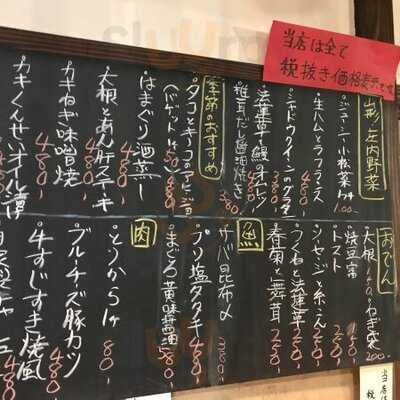 当店は全て
税抜き価格表示です
山形 庄内野菜
ジューシー小松菜ナムル 100-
生ハムとラフランス 480-
シャドウクイーンのグラタン 380-
法蓮草 鰻オムレツ 380-
椎茸だし醤油焼き 380-
季節のおすすめ
タコとキノコのアヒージョ
(バゲット付 50) 580-
はまぐり酒蒸し 480-
大根とあん肝ステーキ 480-
カキねぎ味噌焼 480-
カキくんせいオイル漬 480-
おでん
大根 150-
ねぎ袋 200-
焼豆腐 150-
トマト 250-
ソーセージと糸こん 250-
つくねと法蓮草 250-
春菊と舞茸 250-
魚
サバ昆布〆 380-
ブリ塩タタキ 480-
まぐろ黄味醤油 580-
肉
とりから1ヶ 80-
ブルーチーズ豚カツ 480-
牛すじすき焼風 480-
当店
税